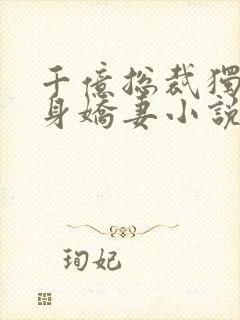 千億總裁獨
身嬌妻小說
珣妃